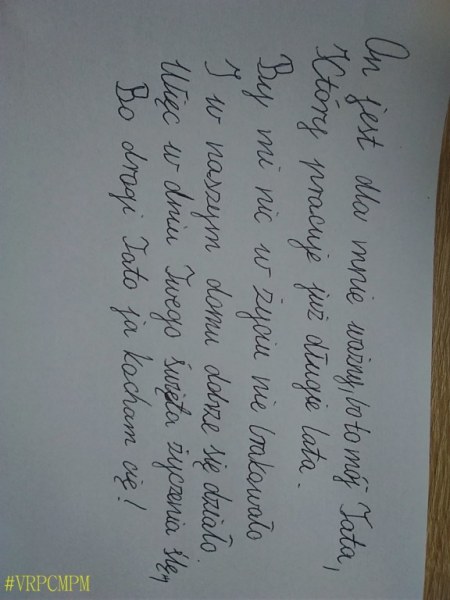 On jest dla mnie ważny, bo to mój Tata,
Który pracuje już długie lata.
By mi nic w życiu nie brakowało
I w naszym domu dobrze się działo.
Więc w dniu Twego święta życzenia ślę,
Bo drogi Tato ja kocham cię!
#VRPCMPM